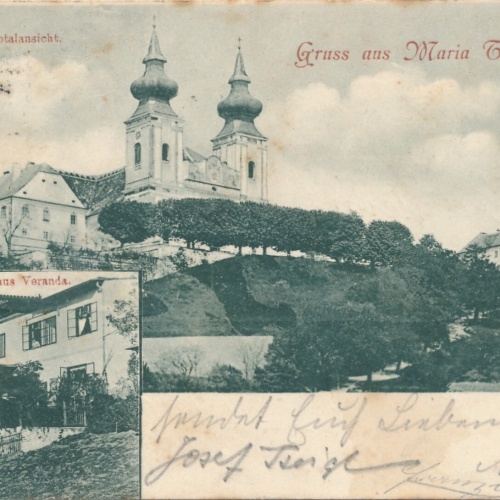 otalansicht.
Gruss aus Maria T
aus Veranda.
sendet Euch Lieben
Josef